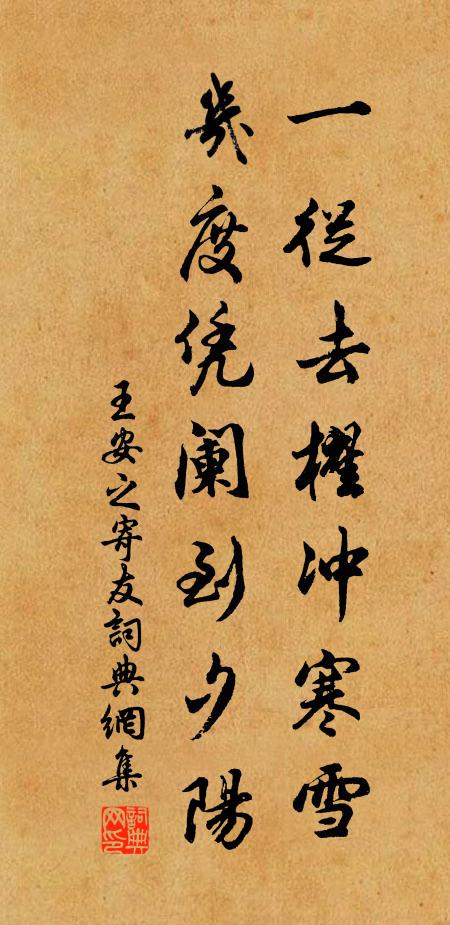 一從去櫂冲寒雪
幾度凭阑到夕陽
王安之寄友詞典網集
詞典网印